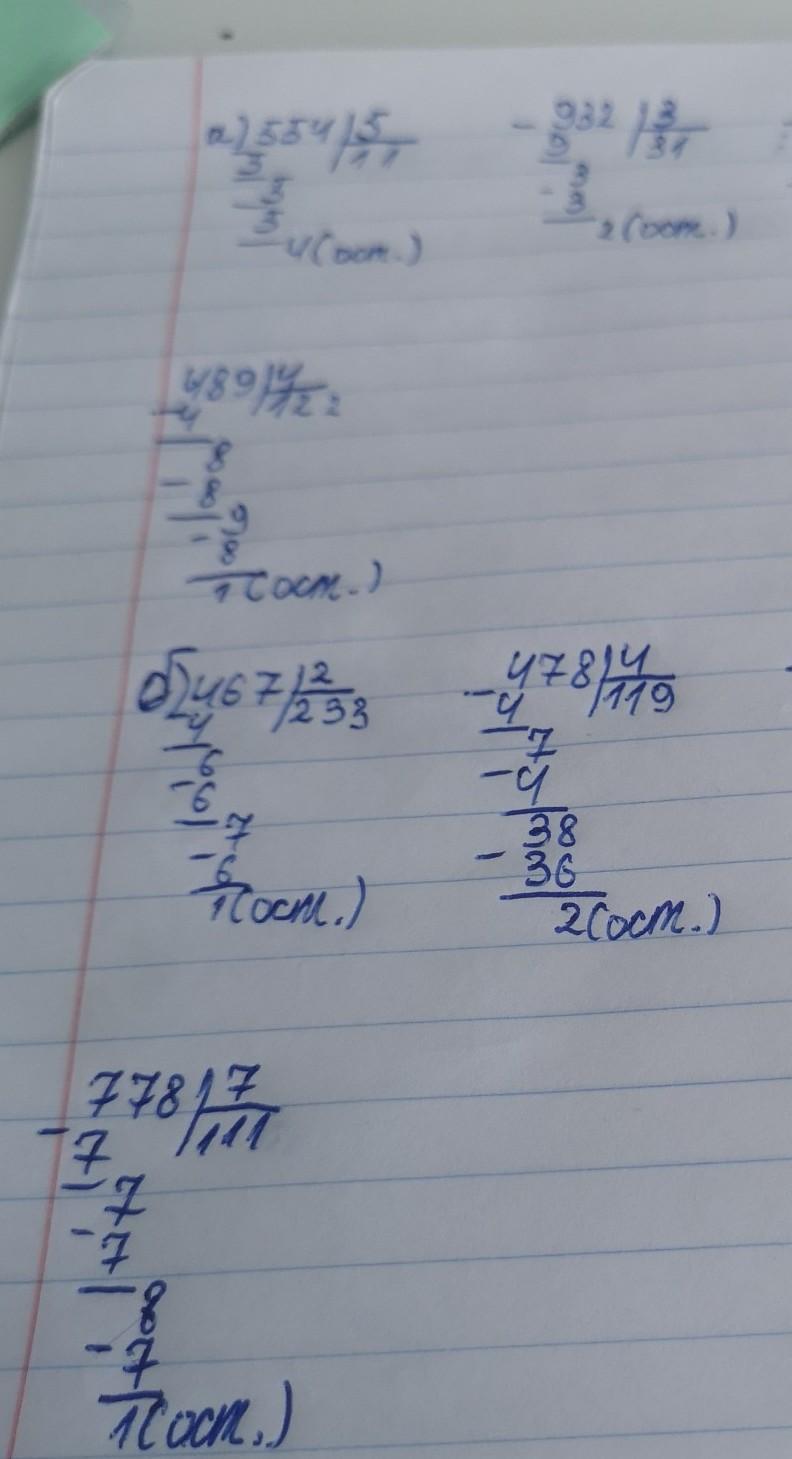 а) 554 | 5 - 932 | 3
5 11 9 31
5 3
- 5 - 3
4 (ост.) 2 (ост.)
489 | 4
- 4 122
8
- 8
9
- 8
1 (ост.)
б) 467 | 2 - 478 | 4
- 4 233 4 119
6 7
- 6 - 4
7 38
- 6 - 36
1 (ост.) 2 (ост.)
778 | 7
- 7 111
7
- 7
8
- 7
1 (ост.)